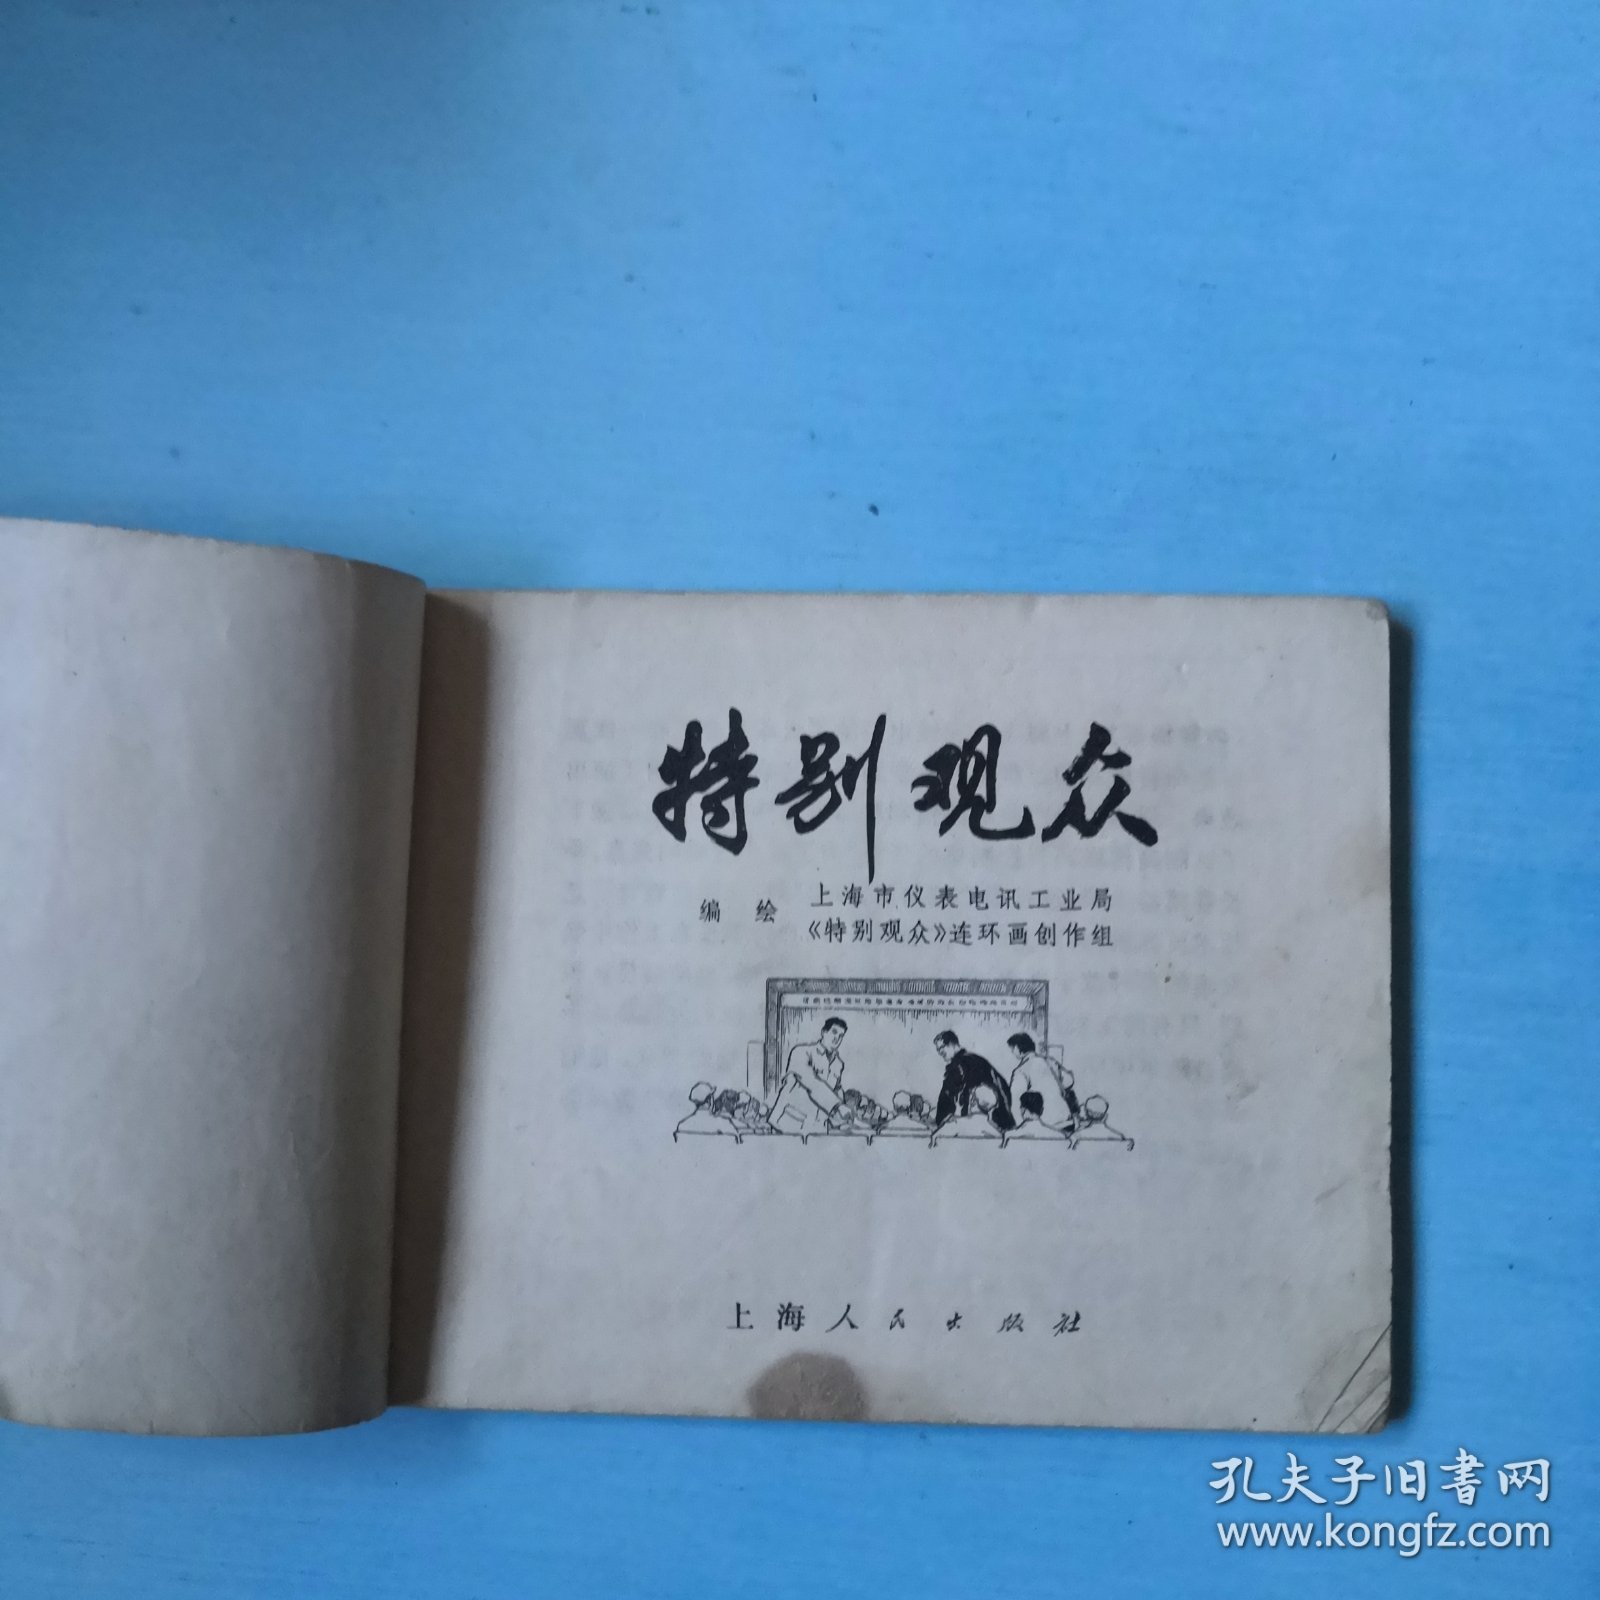 特别观众
编绘 上海市仪表电讯工业局
《特别观众》连环画创作组
上海人民出版社
孔夫子旧书网
www.kongfz.com